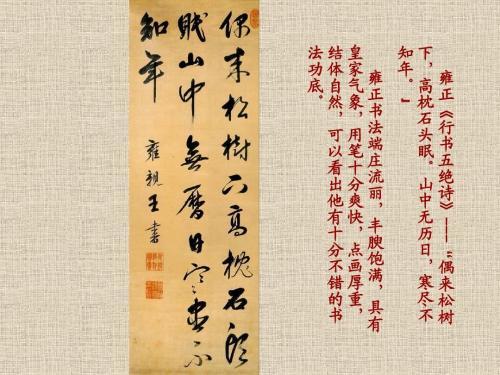 雍正《行书五绝诗》——“偶来松树
下，高枕石头眠。山中无历日，寒尽不
知年。”
雍正书法端庄流丽，丰腴饱满，具有
皇家气象，用笔十分爽快，点画厚重，
结体自然，可以看出他有十分不错的书
法功底。
偶来松樹下高枕石头
眠山中無曆日寒尽不
知年
雍親王書